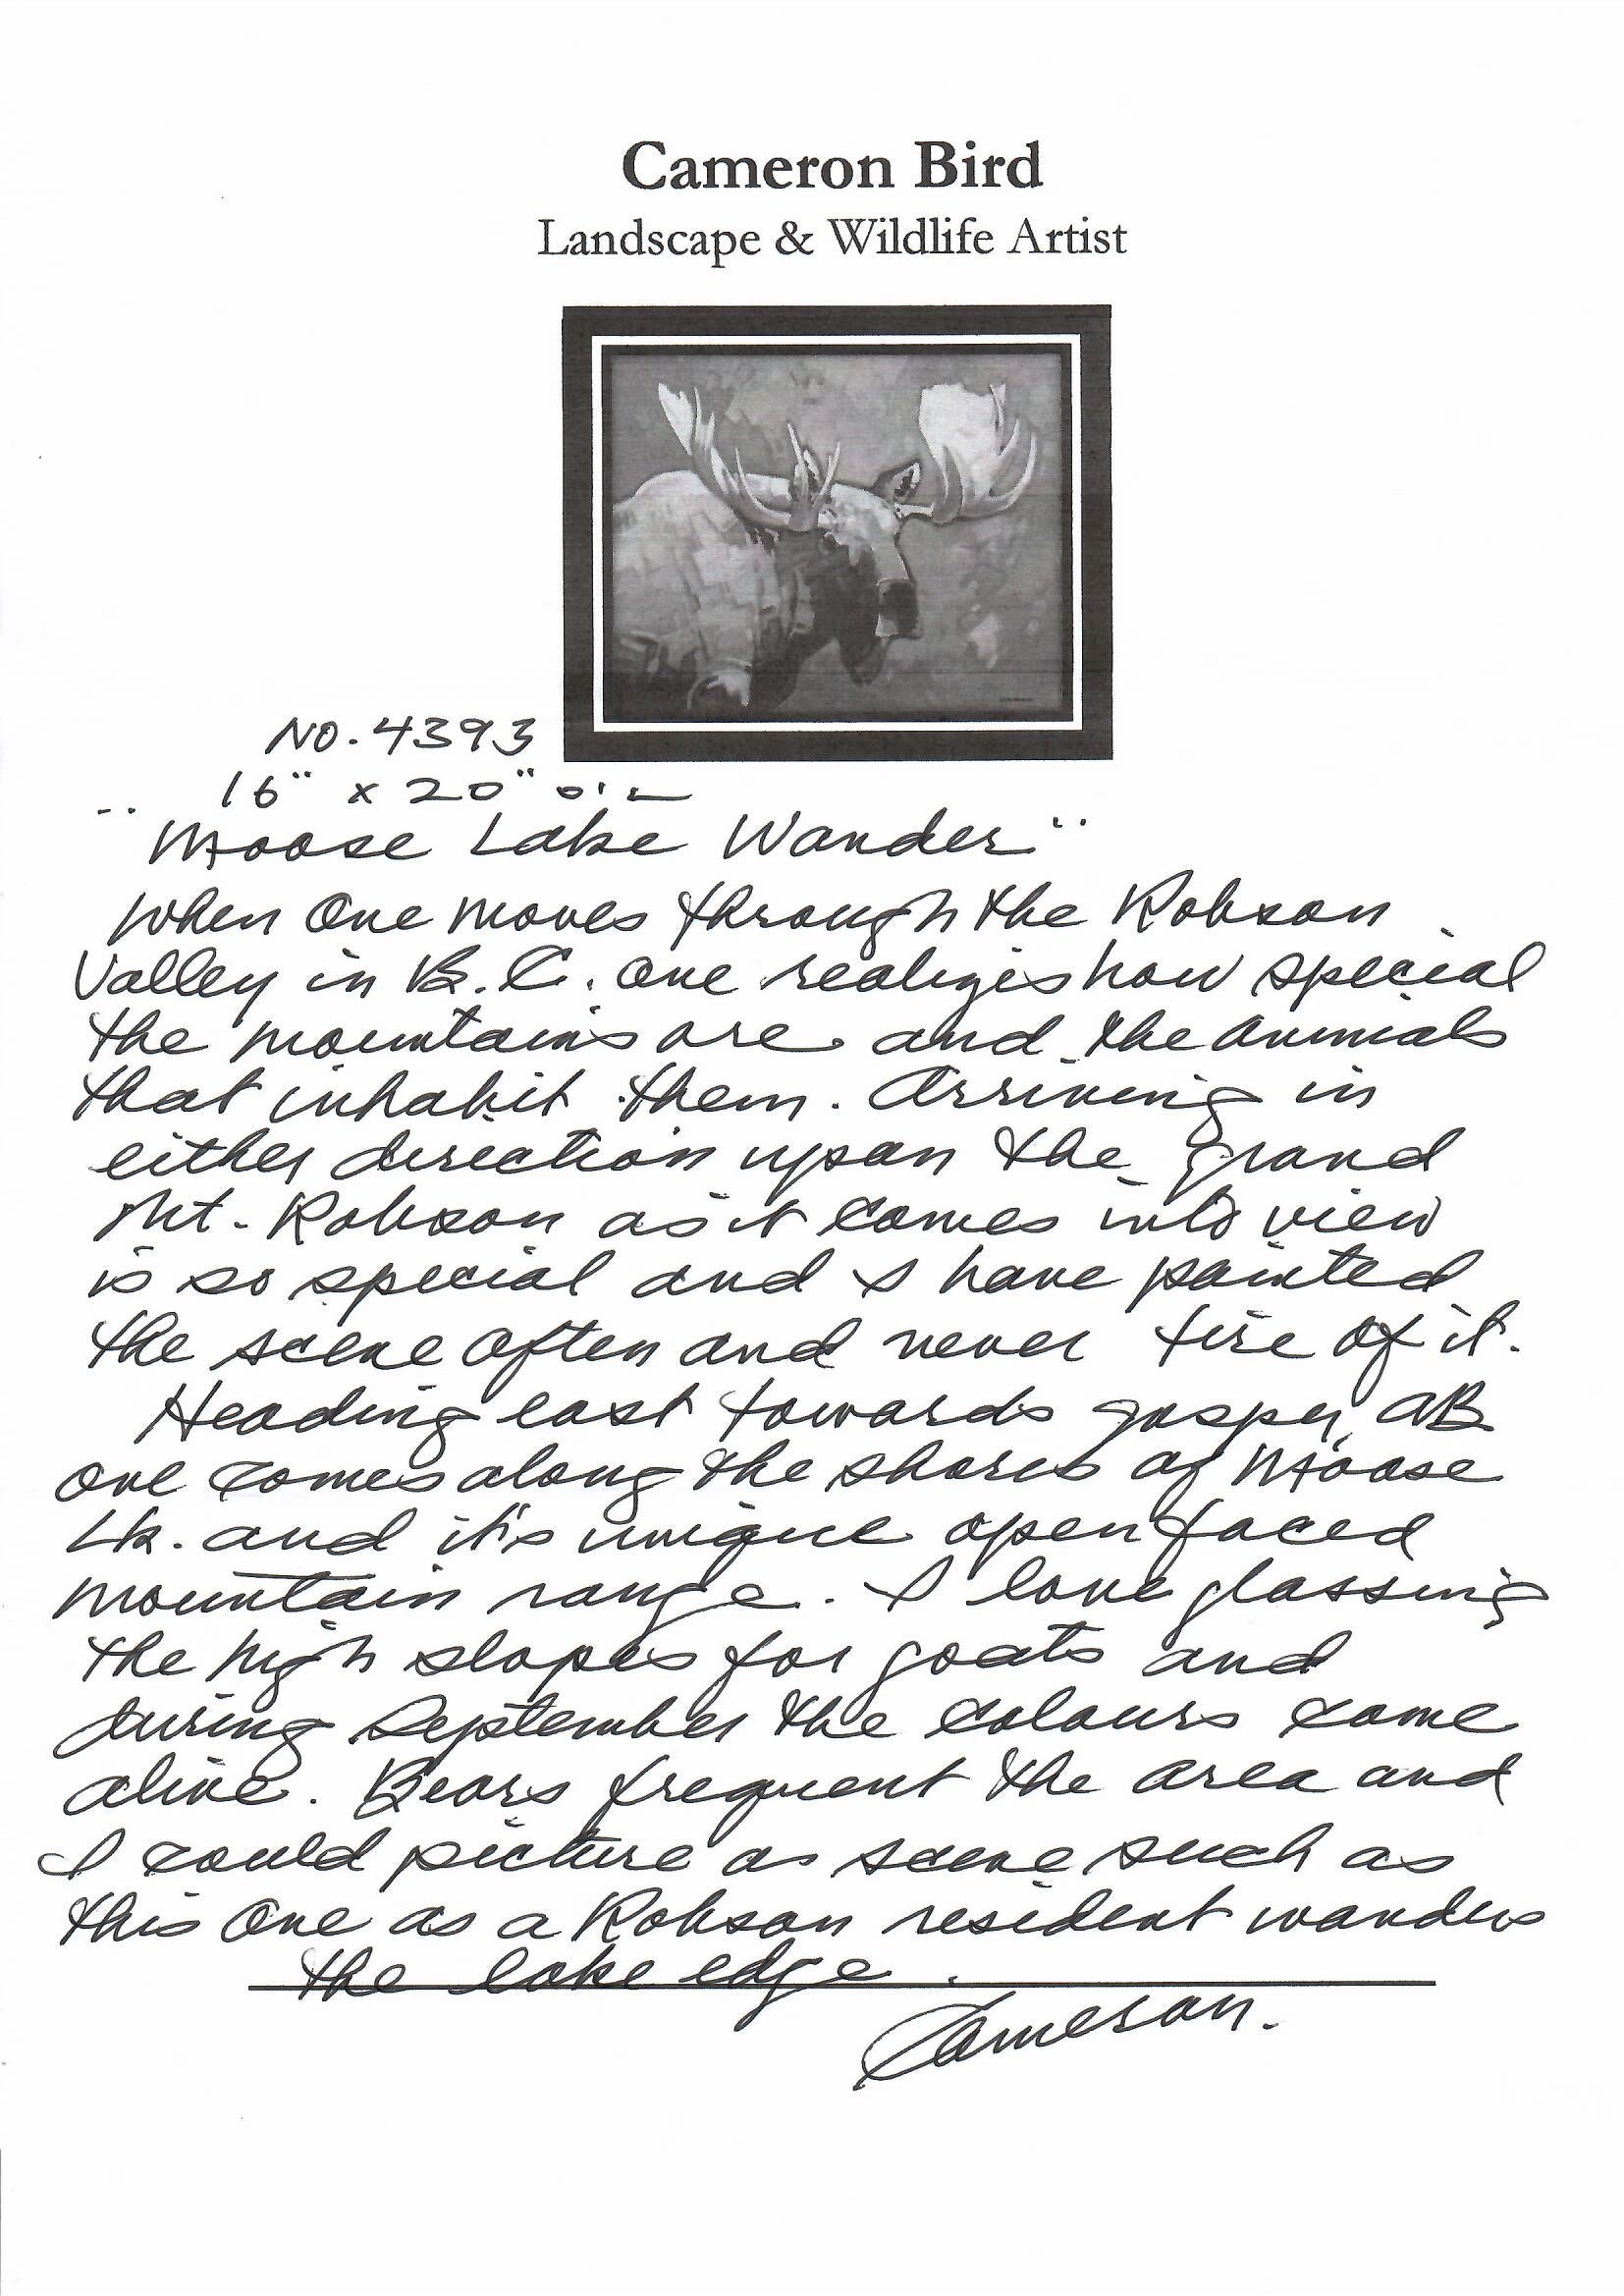 Cameron Bird
Landscape & Wildlife Artist
NO. 4393
16" x 20" OIL
"Moose Lake Wander"
When One moves through the Robson
Valley in B.C. one realizes how special
the mountains are and the animals
that inhabit them. Arriving in
either direction upon the grand
Mt. Robson as it comes into view
is so special and I have painted
the scene often and never tire of it.
Heading east towards Jasper, AB
one comes along the shores of Moose
Lk. and it's unique open faced
mountain range. I love glassing
the high slopes for goats and
during September the colours come
alive. Bears frequent the area and
I could picture a scene such as
this One as a Robson resident wanders
the lake edge.
Cameron.